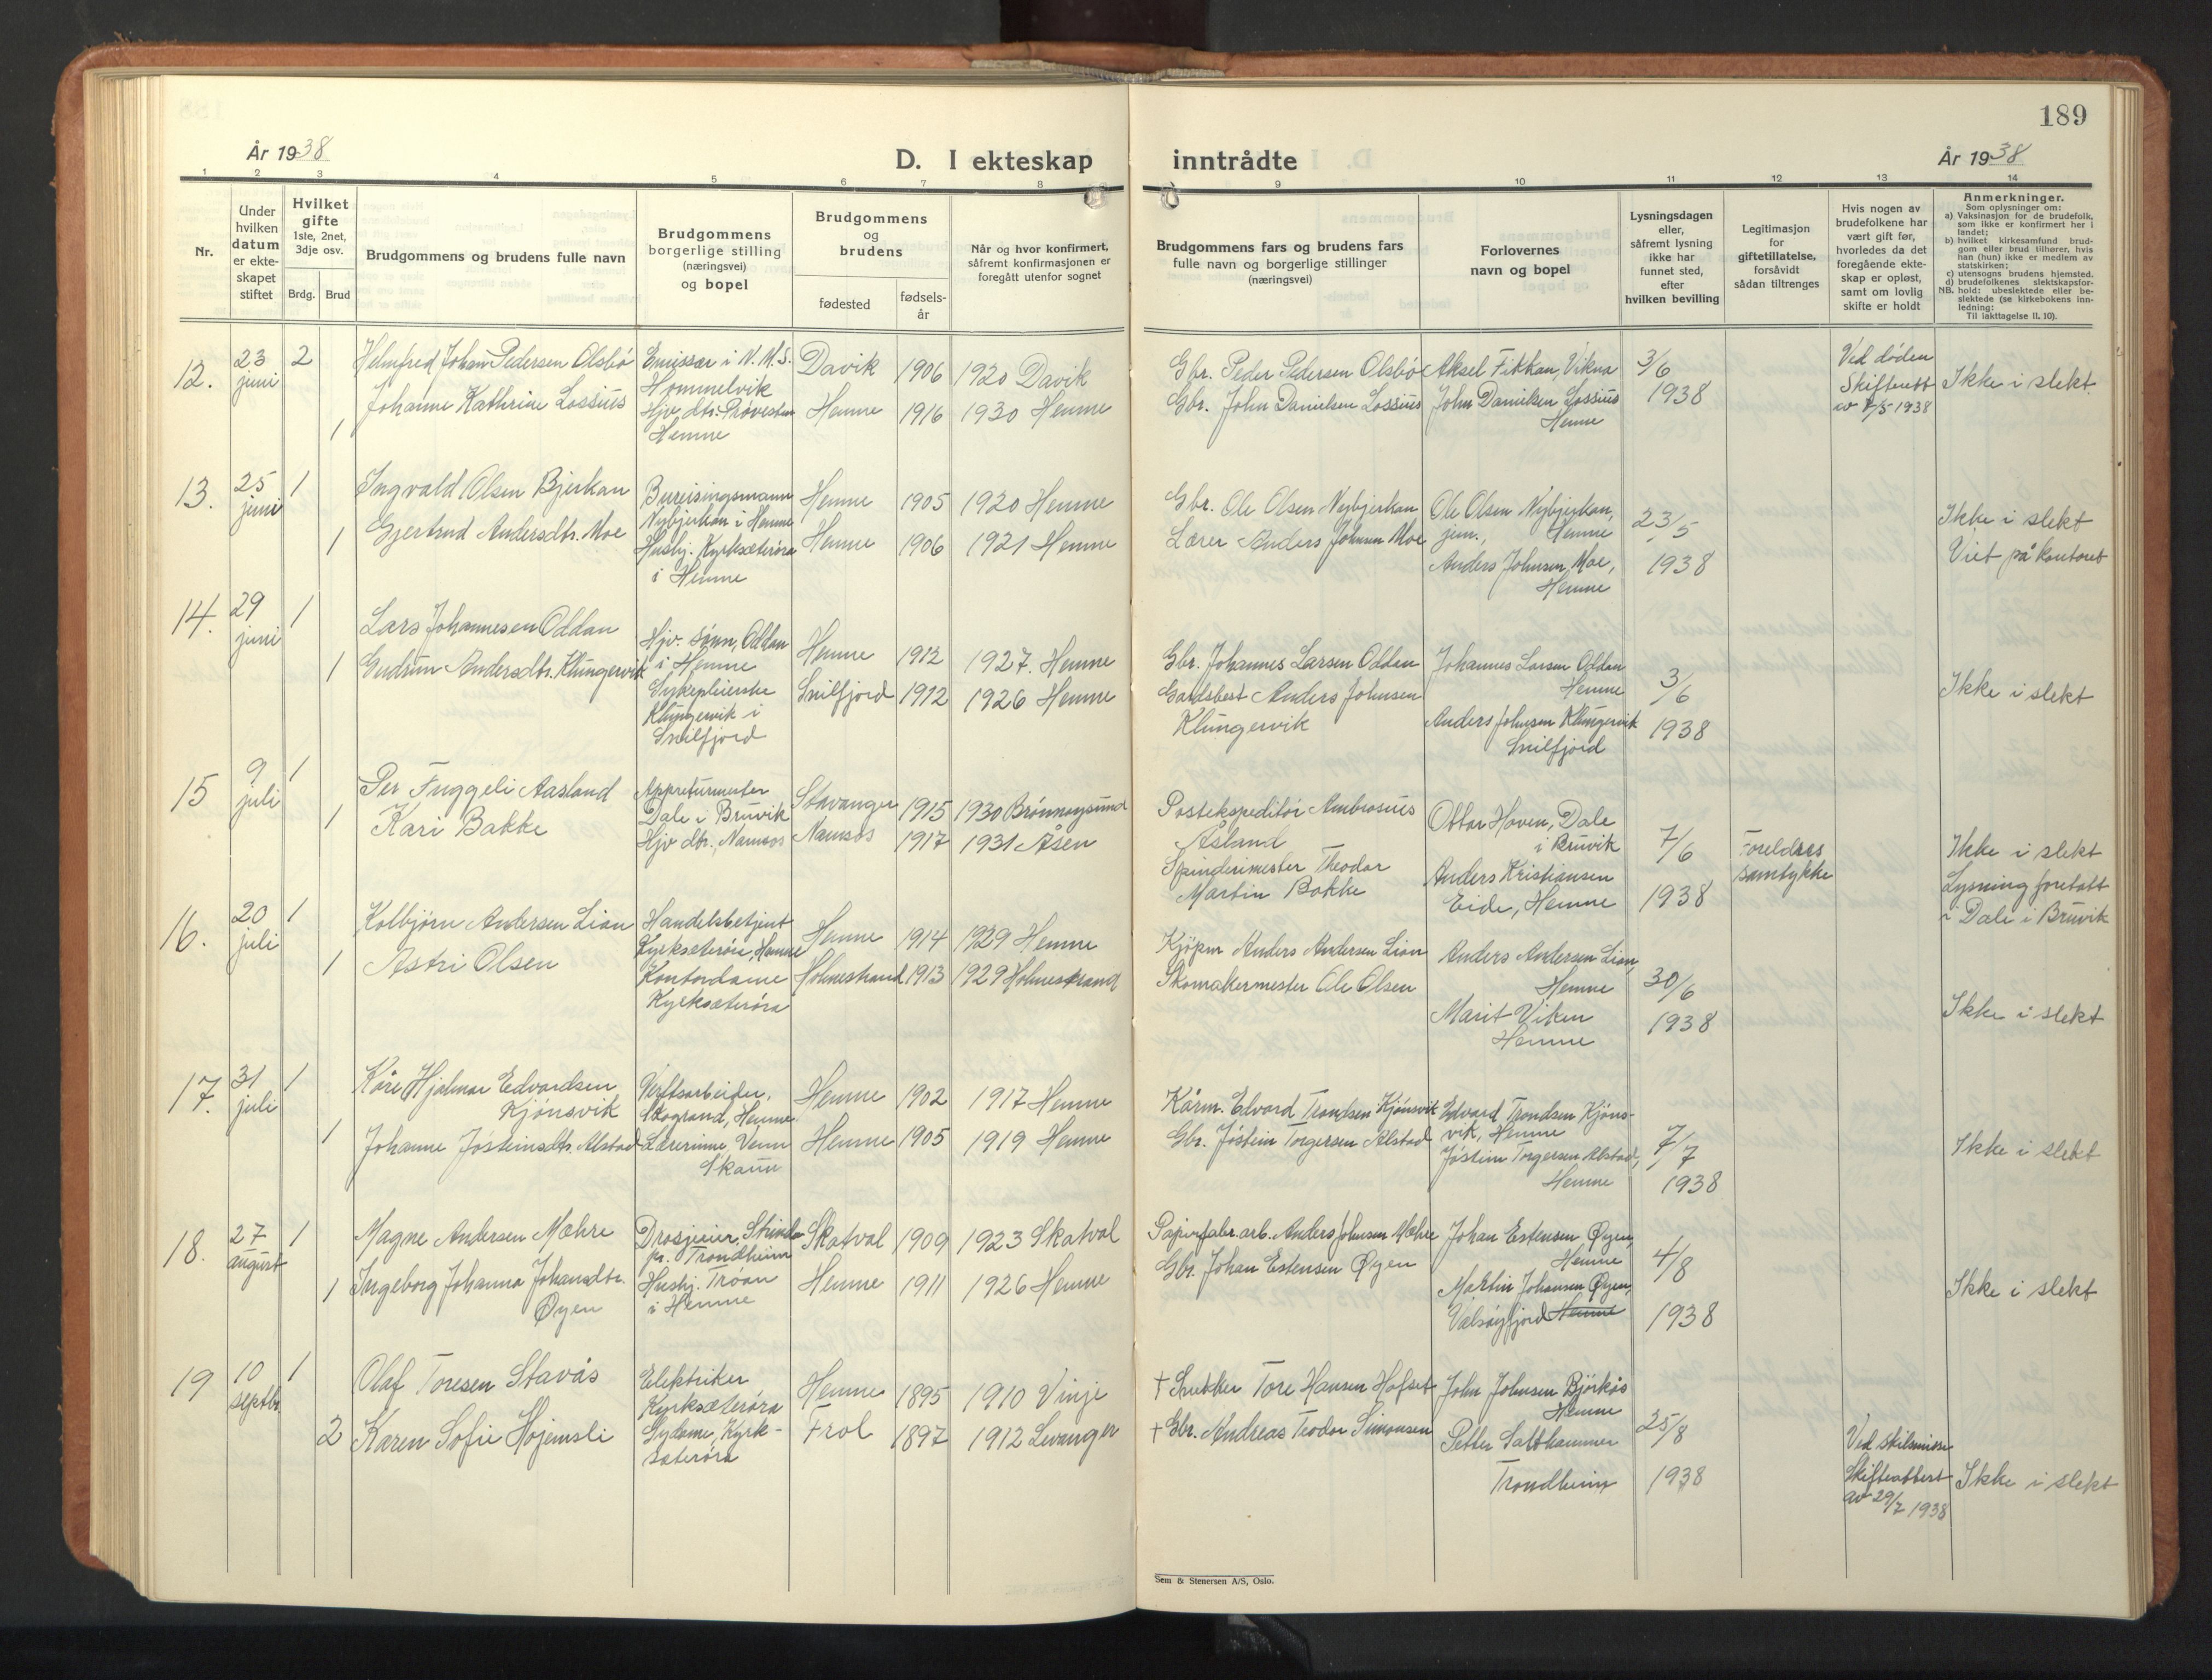 189
År 1938
D. I ekteskap inntrådte
År 1938
1 2 3 4 5 6 7 8 9 10 11 12 13 14
Nr.
Under
hvilken
datum
er ekte-
skapet
stiftet
Hvilket
gifte
1ste, 2net,
3dje osv.
Brdg. Brud
Brudgommens og brudens fulle navn
Brudgommens
borgerlige stilling
(næringsvei)
og bopel
Brudgommens
og
brudens
fødested
fødsels-
år
Når og hvor konfirmert,
såfremt konfirmasjonen er
foregått utenfor sognet
Brudgommens fars og brudens fars
fulle navn og borgerlige stillinger
(næringsvei)
Forlovernes
navn og bopel
Lysningsdagen
eller,
såfremt lysning
ikke har
funnet sted,
efter
hvilken bevilling
Legitimasjon
for
giftetillatelse,
forsåvidt
sådan tiltrenges
Hvis nogen av
brudefolkene har
vært gift før,
hvorledes da det
foregående ekte-
skap er opløst,
samt om lovlig
skifte er holdt
Anmerkninger.
Som oplysninger om:
a) Vaksinasjon for de brudefolk,
som ikke er konfirmert her i
landet;
b) hvilket kirkesamfund brud-
gom eller brud tilhører, hvis
han (hun) ikke er medlem av
statskirken;
c) utensogns brudens hjemsted.
d) brudefolkenes slektskapsfor-
NB. hold: ubeslektede eller be-
slektede (se kirkebokens inn-
ledning:
Til iakttagelse II. 10).
12.
23
juni
2
1
Helmfred Johan Pedersen Olsbö
Johanne Kathrine Lossius
Emissær i N.M.S.
Hommelvik
Hjv. dtr. Prøvesten
Hemne
Davik 1906 1920 Davik
Hemne 1916 1930 Hemne
Gbr. Peder Pedersen Olsbö
Gbr. John Danielsen Lossius
Aksel Fikkan, Vikna
John Danielsen Lossius
Hemne
3/6
1938
Ved døden
Skifteatt
av 7/5 1938
Ikke i slekt
13.
25
juni
1
1
Ingvald Olsen Bjerkan
Gjertrud Andersdtr. Moe
Bureisingsmann
Nybjerkan i Hemne
Husbj. Kyrksæterøra
i Hemne
Hemne 1905 1920 Hemne
Hemne 1906 1921 Hemne
Gbr. Ole Olsen Nybjerkan
Lærer Anders Johnsen Moe
Ole Olsen Nybjerkan,
jun., Hemne
Anders Johnsen Moe,
Hemne
23/5
1938
Ikke i slekt
Viet på kontoret
14.
29
juni
1
1
Lars Johannesen Oddan
Gudrun Andersdtr. Klungervik
Hjv. sønn, Oddan
i Hemne
Sykepleierske
Klungervik i
Snilfjord
Hemne 1912 1927. Hemne
Snilfjord 1912 1926 Hemne
Gbr. Johannes Larsen Oddan
Gardsbest Anders Johnsen
Klungervik
Johannes Larsen Oddan
Hemne
Anders Johnsen Klungervik
Snilfjord
3/6
1938
Ikke i slekt
15
9
juli
1
1
Per Fuggeli Aasland
Kari Bakke
Appreturmester
Dale i Bruvik
Hjv dtr., Namsos
Stavanger 1915 1930 Brönnøysund
Namsos 1917 1931 Åsen
Postekspeditör Ambrosius
Åsland
Spinderimester Theodor
Martin Bakke
Ottar Hoven, Dale
i Bruvik
Anders Kristiansen
Eide, Hemne
7/6
1938
Foreldres
samtykke
Ikke i slekt
Lysning foretatt
i Dale i Bruvik
16.
20
juli
1
1
Kolbjörn Andersen Lian
Astri Olsen
Handelsbetjent
Kyrksæterøra, Hemne
Kontordame
Kyrksæterøra
Hemne 1914 1929 Hemne
Holmestrand 1913 1929 Holmestrand
Kjöpm Anders Andersen Lian
Skomakermester Ole Olsen
Anders Andersen Lian,
Hemne
Marit Viken
Hemne
30/6
1938
Ikke i slekt
17.
31
juli
1
1
Kåre Hjalmar Edvardsen
Kjönsvik
Johanne Jösteinsdtr. Alstad
Verftsarbeider,
Skogrand, Hemne
Lærerinne, Venn
Skaun
Hemne 1902 1917 Hemne
Hemne 1905 1919 Hemne
Kårm. Edvard Trondsen Kjönsvik
Gbr. Jöstein Torgersen Alstad
Edvard Trondsen Kjöns-
vik, Hemne
Jöstein Torgersen Alstad,
Hemne
7/7
1938
Ikke i slekt
18.
27
august
1
1
Magne Andersen Mæhre
Ingeborg Johanna Johansdtr.
Øyen
Drosjeeier, Strinda
pr. Trondheim
Husbj. Tröan
i Hemne
Skatval 1909 1923 Skatval
Hemne 1911 1926 Hemne
Papirfabr. arb. Anders Johnsen Mæhre
Gbr. Johan Estensen Øyen
Johan Estensen Øyen,
Hemne
Martin Johansen Øyen,
Valsøyfjord Hemne
4/8
1938
Ikke i slekt
19
10
septbr.
1
2
Olaf Toresen Stavås
Karen Sofie Hojemsli
Elektriker
Kyrksæterøra
Sydame, Kyrk-
sæterøra
Hemne 1895 1910 Vinje
Frol 1897 1912 Levanger
† Snekker Tore Hansen Hofset
† Gbr. Andreas Teodor Simonsen
John Johnsen Björkås
Hemne
Petter Salthammer
Trondheim
25/8
1938
Ved skilsmisse
Skifteattest
av 29/7 1938
Ikke i slekt
Sem & Stenersen A/S, Oslo.